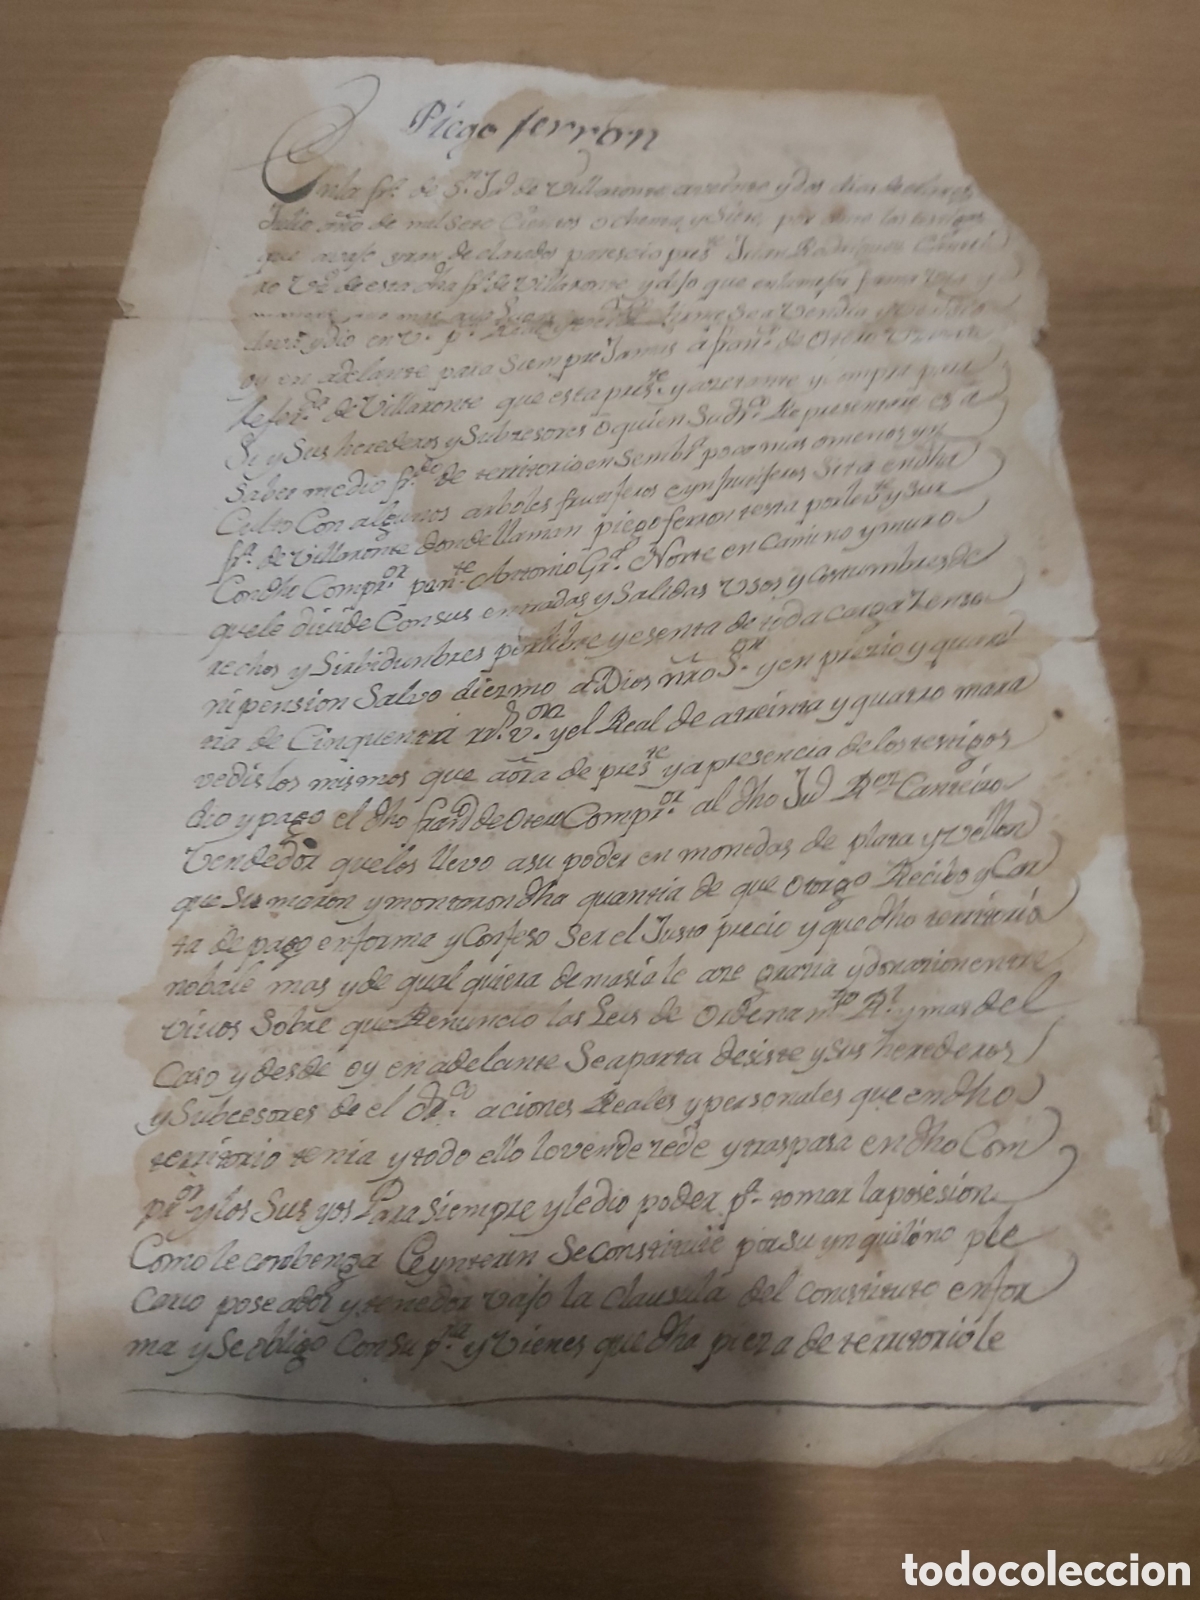 Piego ferron
En la fra. de Sn. Jd. de Villaronte a veinte y dos dias de el mes
Julio año de mil sete Cientos ochenta y Siete, por ante los testigos
que avajo yran declarados parescio preste. Juan Rodriguez Cantei
ro Vº. de esta dha fra. de Villaronte, y dijo que en la mejor forma
oy en adelante para Siempre Jamas a franco. de Otero
de fra. de Villaronte que esta preste. y azetante y Compra para
Si y Sus herederos y Subzesores o quien Su dro. Representare es a
Saber medio fdo. de territorio en Sembra. poco mas o menos yn
Culto Con algunos arboles frutiferos e ynfrutiferos Sita en dha
fra. de Villaronte donde llaman piego ferron testa por leste y Sur
Con dho Compror. penete. Antonio Gra. Norte en Camino y muro
que le divide Con Sus entradas y Salidas Usos y Costumbres de
rechos y Sirbidunbres por libre y esenta de toda carga Zenso
ni pension Salvo diezmo a Dios nro Sor. y en prezio y quan
tia de Cinquenta rrs. von. y el Real de a treinta y quatro mara
vedis los mismos que aora de preste. y a presencia de los testigos
dio y pago el dho franco de Otero Compror. al dho Jud Rez Canteiro
Vendedor que los llevo a su poder en monedas de plata y Vellon
que Su maron y montaron dha quantia de que Otorgo Recibo y Car
ta de pago en forma y Confeso Ser el Justo precio y que dho territorio
no bale mas y de qual quiera demasia le aze grazia y donazion entre
vivos Sobre que Renuncio las Leis de Ordenamto. Rl. y mas del
Caso y desde oy en adelante Se aparta desiste y Sus herederos
y Subcesores de el dro. aciones Reales y personales que en dho
territorio tenia y todo ello lo vende zede y traspasa en dho Com
pror. y los Sus yos Para Siempre y le dio poder pa. tomar la posesion
Como le conbenga e ynterin Se constituie por su ynquilino pre
cario poseador y tenedor vajo la clausula del constituto en for
ma y Se obligo Con Su pna. y Vienes que dha pieza de territorio le
todocoleccion